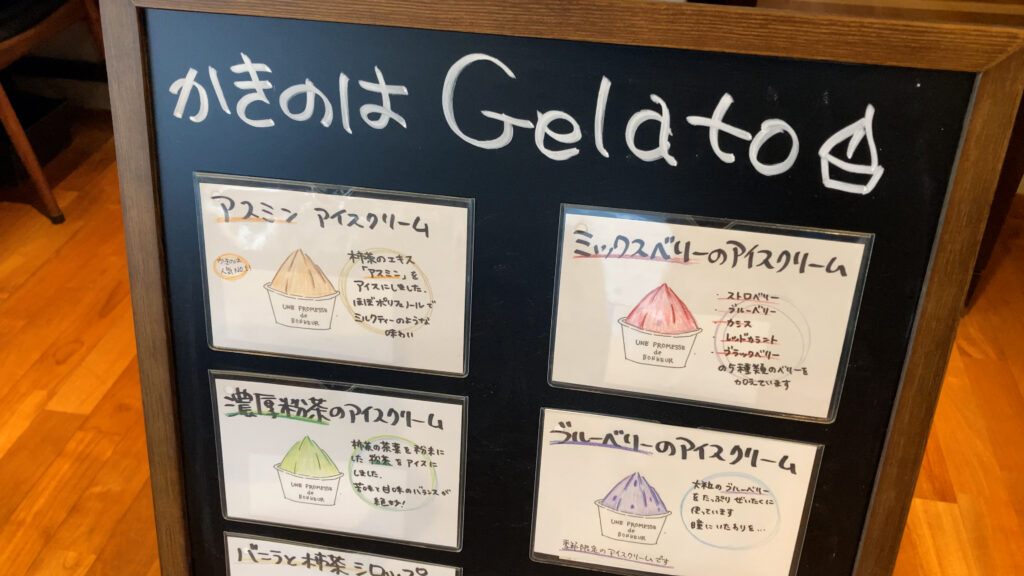 かきのは Gelato
アスミン アイスクリーム
かきのは
人気NO.1!
柿茶のエキス
「アスミン」を
アイスにしました。
ほぼポリフェノールで
ミルクティーのような
味わい
UNE PROMESSE
de
BONHEUR
ミックスベリーのアイスクリーム
・ストロベリー
・ブルーベリー
・カシス
・レッドカラント
・ブラックベリー
の5種類のベリーを
加えています
UNE PROMESSE
de
BONHEUR
濃厚粉茶のアイスクリーム
柿茶の茶葉を粉末に
した粉茶をアイスに
しました。
苦味と甘味のバランスが
絶妙!
UNE PROMESSE
de
BONHEUR
ブルーベリーのアイスクリーム
大粒のブルーベリー
をたっぷりぜいたくに
使っています
瞳にいたわりを…
UNE PROMESSE
de
BONHEUR
季節限定のアイスクリームです
バニラと柿茶シロップ